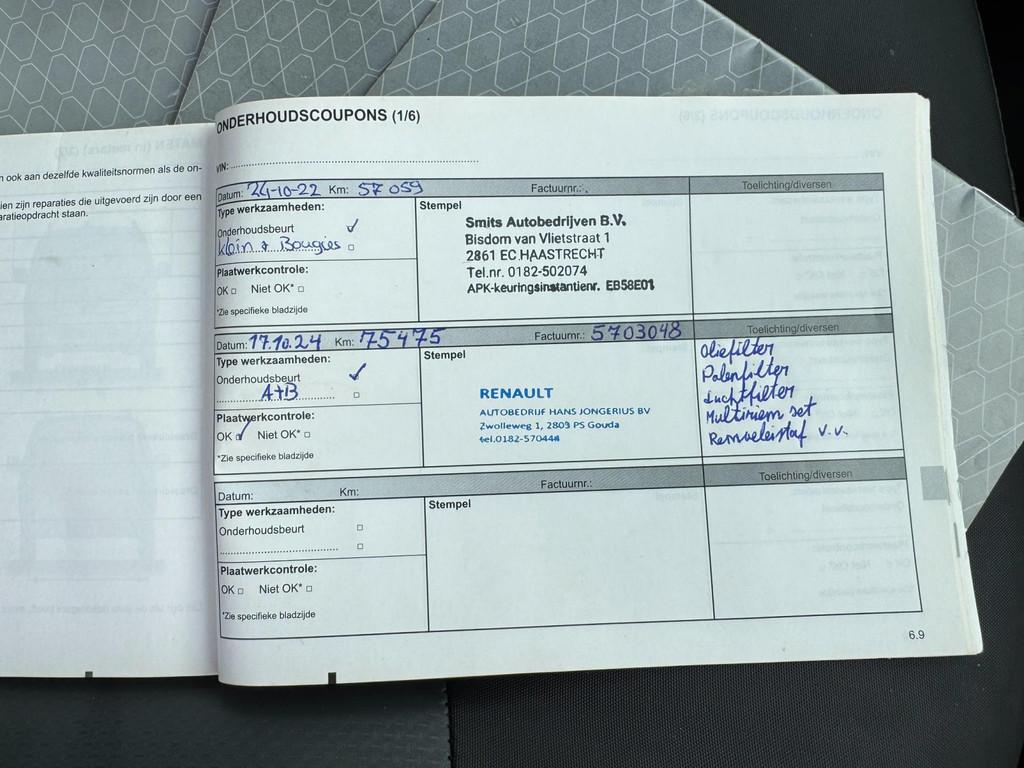 n ook aan dezelfde kwaliteitsnormen als de on-
ien zijn reparaties die uitgevoerd zijn door een
aratieopdracht staan.
ONDERHOUDSCOUPONS (1/6)
VIN:
Datum: 24-10-22 Km: 57 059 Factuurnr.: Toelichting/diversen
Type werkzaamheden:
Onderhoudsbeurt
klein + Bougies
Plaatwerkcontrole:
OK Niet OK*
*Zie specifieke bladzijde
Stempel
Smits Autobedrijven B.V.
Bisdom van Vlietstraat 1
2861 EC HAASTRECHT
Tel.nr. 0182-502074
APK-keuringsinstantienr. EB58E01
Datum: 17.10.24 Km: 75475 Factuurnr.: 5703048 Toelichting/diversen
Type werkzaamheden:
Onderhoudsbeurt
A+B
Plaatwerkcontrole:
OK Niet OK*
*Zie specifieke bladzijde
Stempel
RENAULT
AUTOBEDRIJF HANS JONGERIUS BV
Zwolleweg 1, 2803 PS Gouda
tel.0182-570444
Oliefilter
Polenfilter
Luchtfilter
Multiriem set
Remvloeistof v.v.
Datum: Km: Factuurnr.: Toelichting/diversen
Type werkzaamheden:
Onderhoudsbeurt
Plaatwerkcontrole:
OK Niet OK*
*Zie specifieke bladzijde
Stempel
6.9